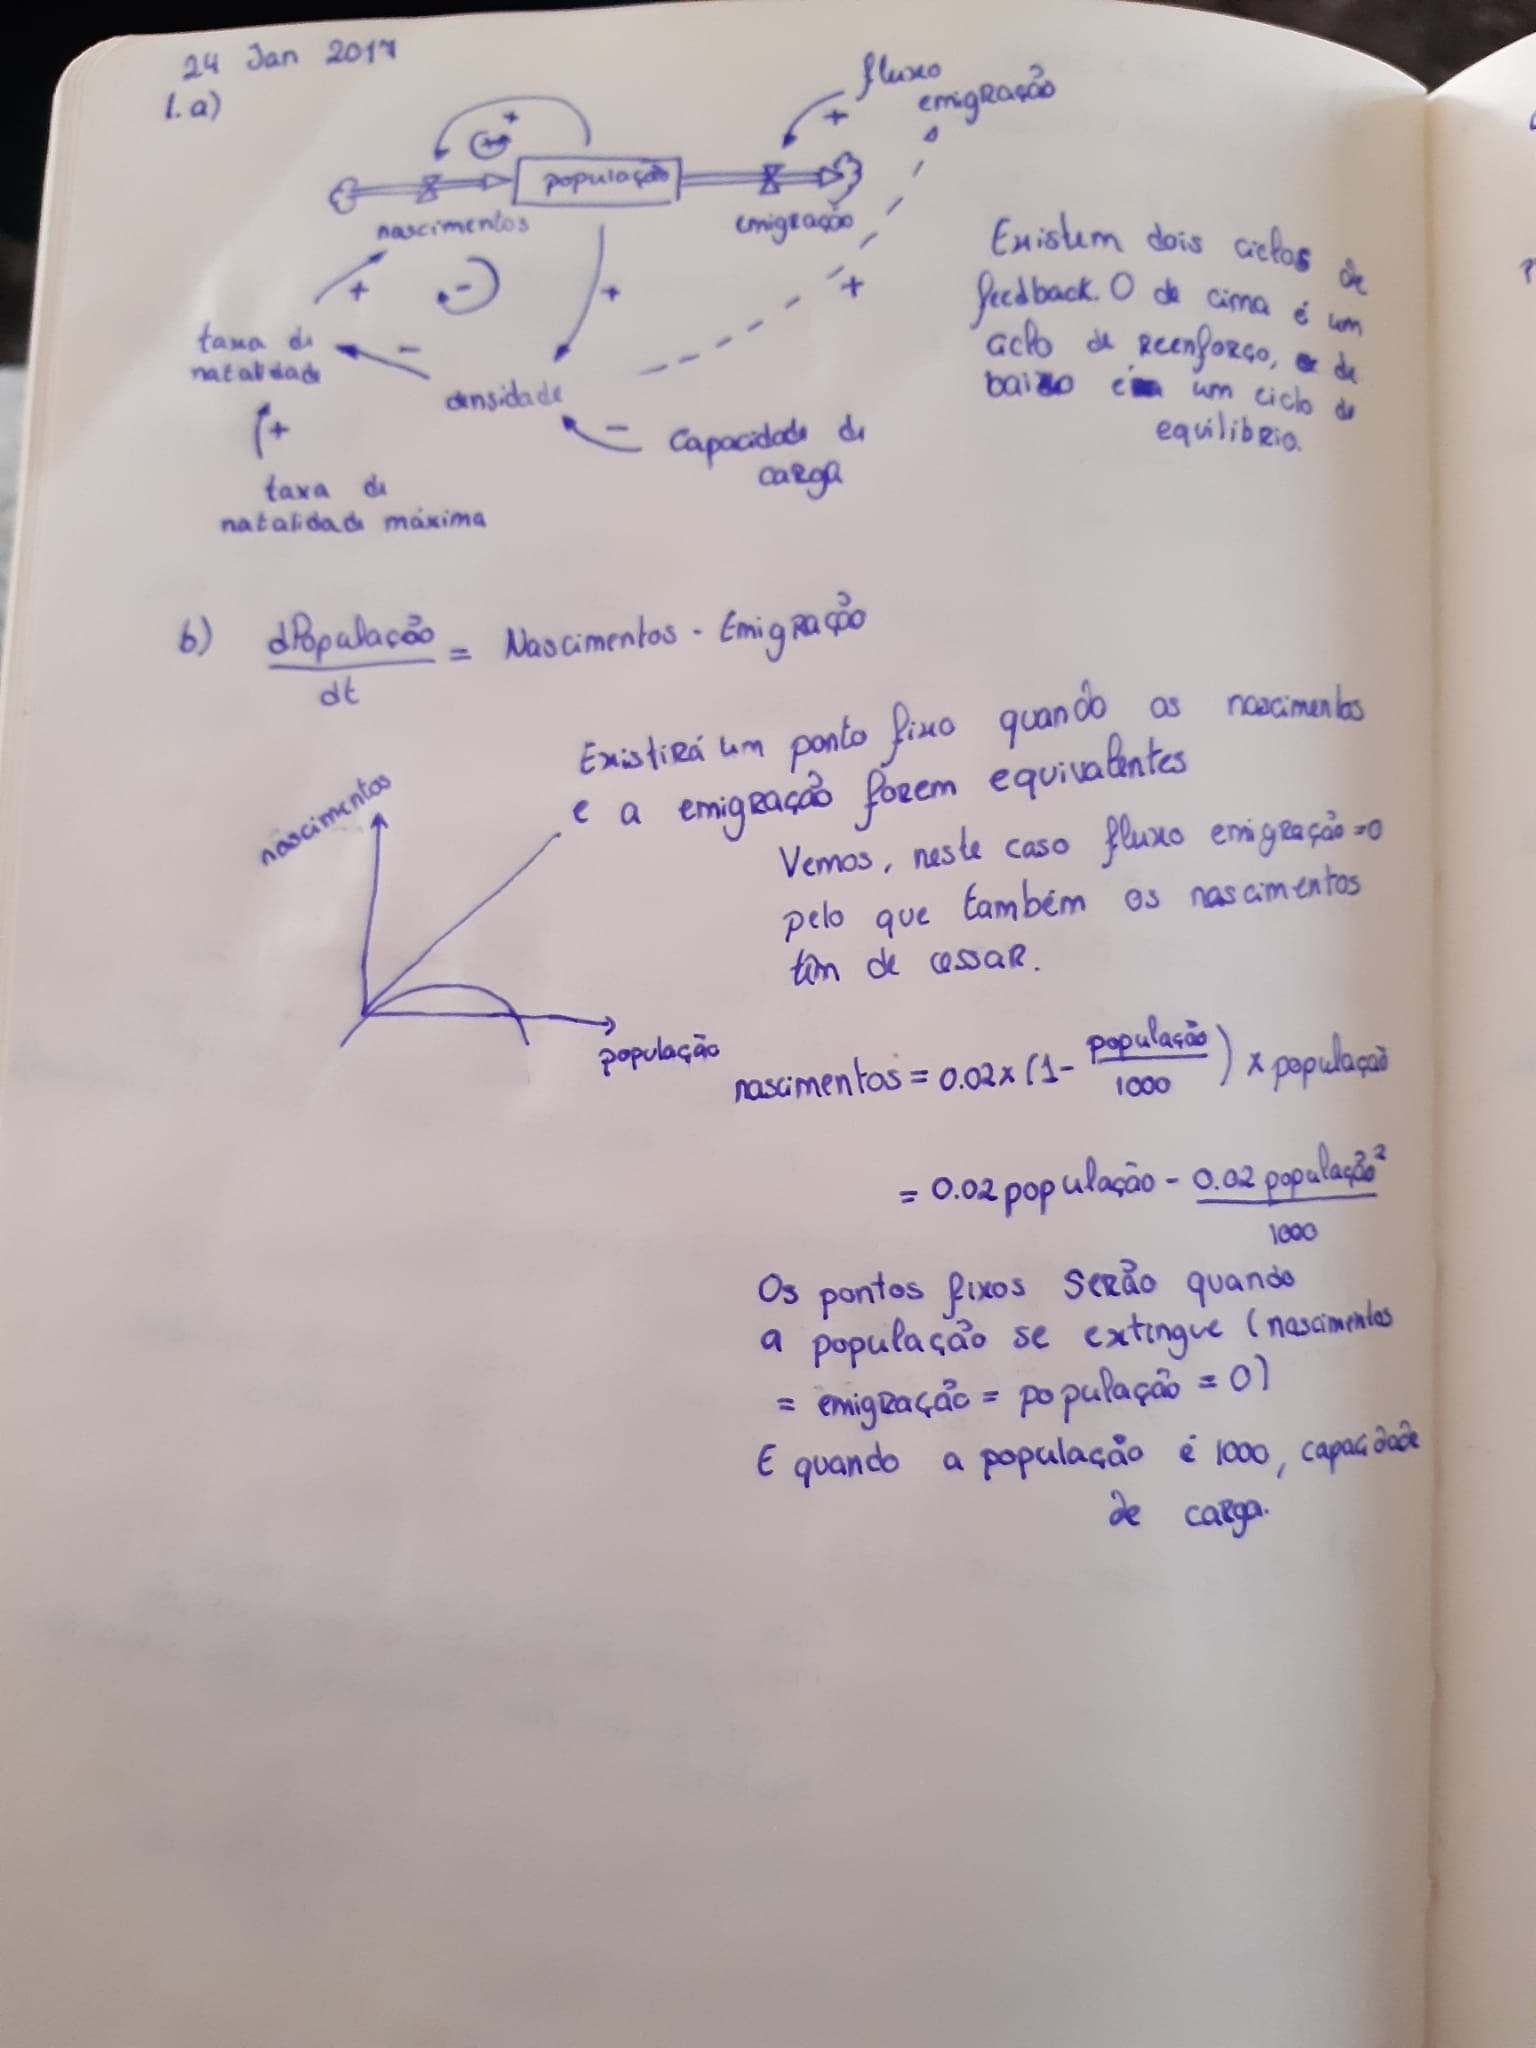 24 Jan 2017
1. a)
fluxo
emigração
+
+
+
população
nascimentos
emigração
+
-
+
+
taxa de
natalidade
-
densidade
+
-
Capacidade de
carga
taxa de
natalidade máxima
Existem dois ciclos de
feedback. O de cima é um
ciclo de reenforço, o de
baixo é um ciclo de
equilibrio.
b) dPopulação/dt = Nascimentos - Emigração
Existirá um ponto fixo quando os nascimentos
e a emigração forem equivalentes
nascimentos
população
Vemos, neste caso fluxo emigração=0
pelo que também os nascimentos
têm de cessar.
nascimentos = 0.02 x (1 - população/1000) x população
= 0.02 população - 0.02 população²/1000
Os pontos fixos serão quando
a população se extingue (nascimentos
= emigração = população = 0)
E quando a população é 1000, capacidade
de carga.